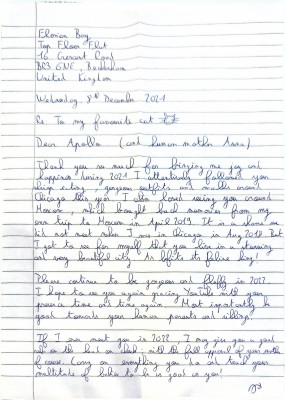 Florian Bay
Top Floor Flat
16 Crescent Road
BR3 6NE, Beckenham
United Kingdom
Wednesday, 8th December 2021
Re To my favourite cat
Dear Apollo (and human mother Anna)
Thank you so much for bringing me joy and
happiness during 2021. I collectively followed your
sleep eating, gorgeous outfits and walks around
Chicago this year. I also loved seeing you around
Moscow, which brought back memories from my
own trip to Moscow in April 2019. It is a shame we
did not meet when I was in Chicago in Aug 2018. But
I got to see for myself that you live in a stunning
and very beautiful city. As befits its feline king!
Please continue to be gorgeous and fluffy in 2022.
I hope to see you again gracing YouTube with your
presence time and time again. Most importantly be
good towards your human parents and siblings!
If I ever meet you in 2022, I may give you a good
rub on the head and chest; with the full approval of your mother
of course. Carry on everything you do and teach your
multitude of babies to be as good as you!